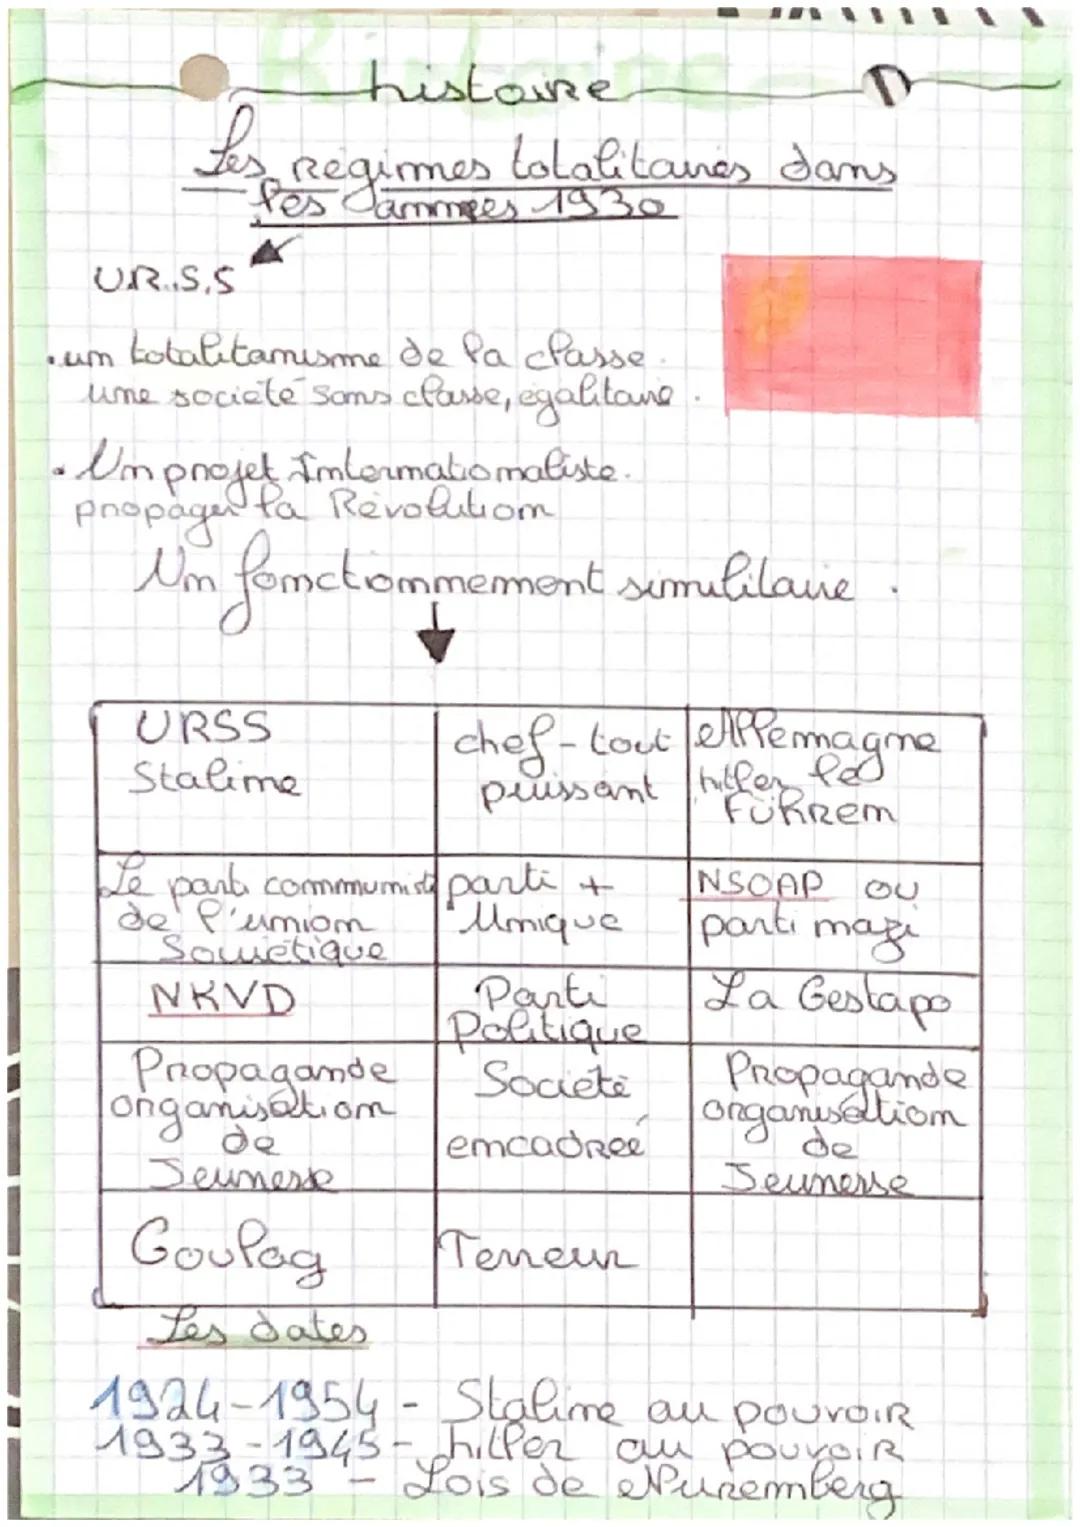 histoire
Les Régimes totalitaires dans
les années 1930
U.R.S.S
. un totalitarisme de la classe.
une societé sans classe, égalitaire.
. Un projet Internationaliste.
propager la Révolution
Un fonctionnement similitaire.
URSS
Staline
chef-tout
puissant
Allemagne
hitler le
Führem
Le parti communiste
de l'union
Soviétique
parti +
Unique
NSOAP ou
parti nazi
NKVD
Parti
Politique
La Gestapo
Propagande
organisation
de
Jeunesse
Societé
encadreé
Propagande
organisation
de
Jeunesse
Goulag
Terreur
Les dates
1924-1954 - Staline au pouvoir
1933-1945 - hitler au pouvoir
1933 - Lois de Nuremberg